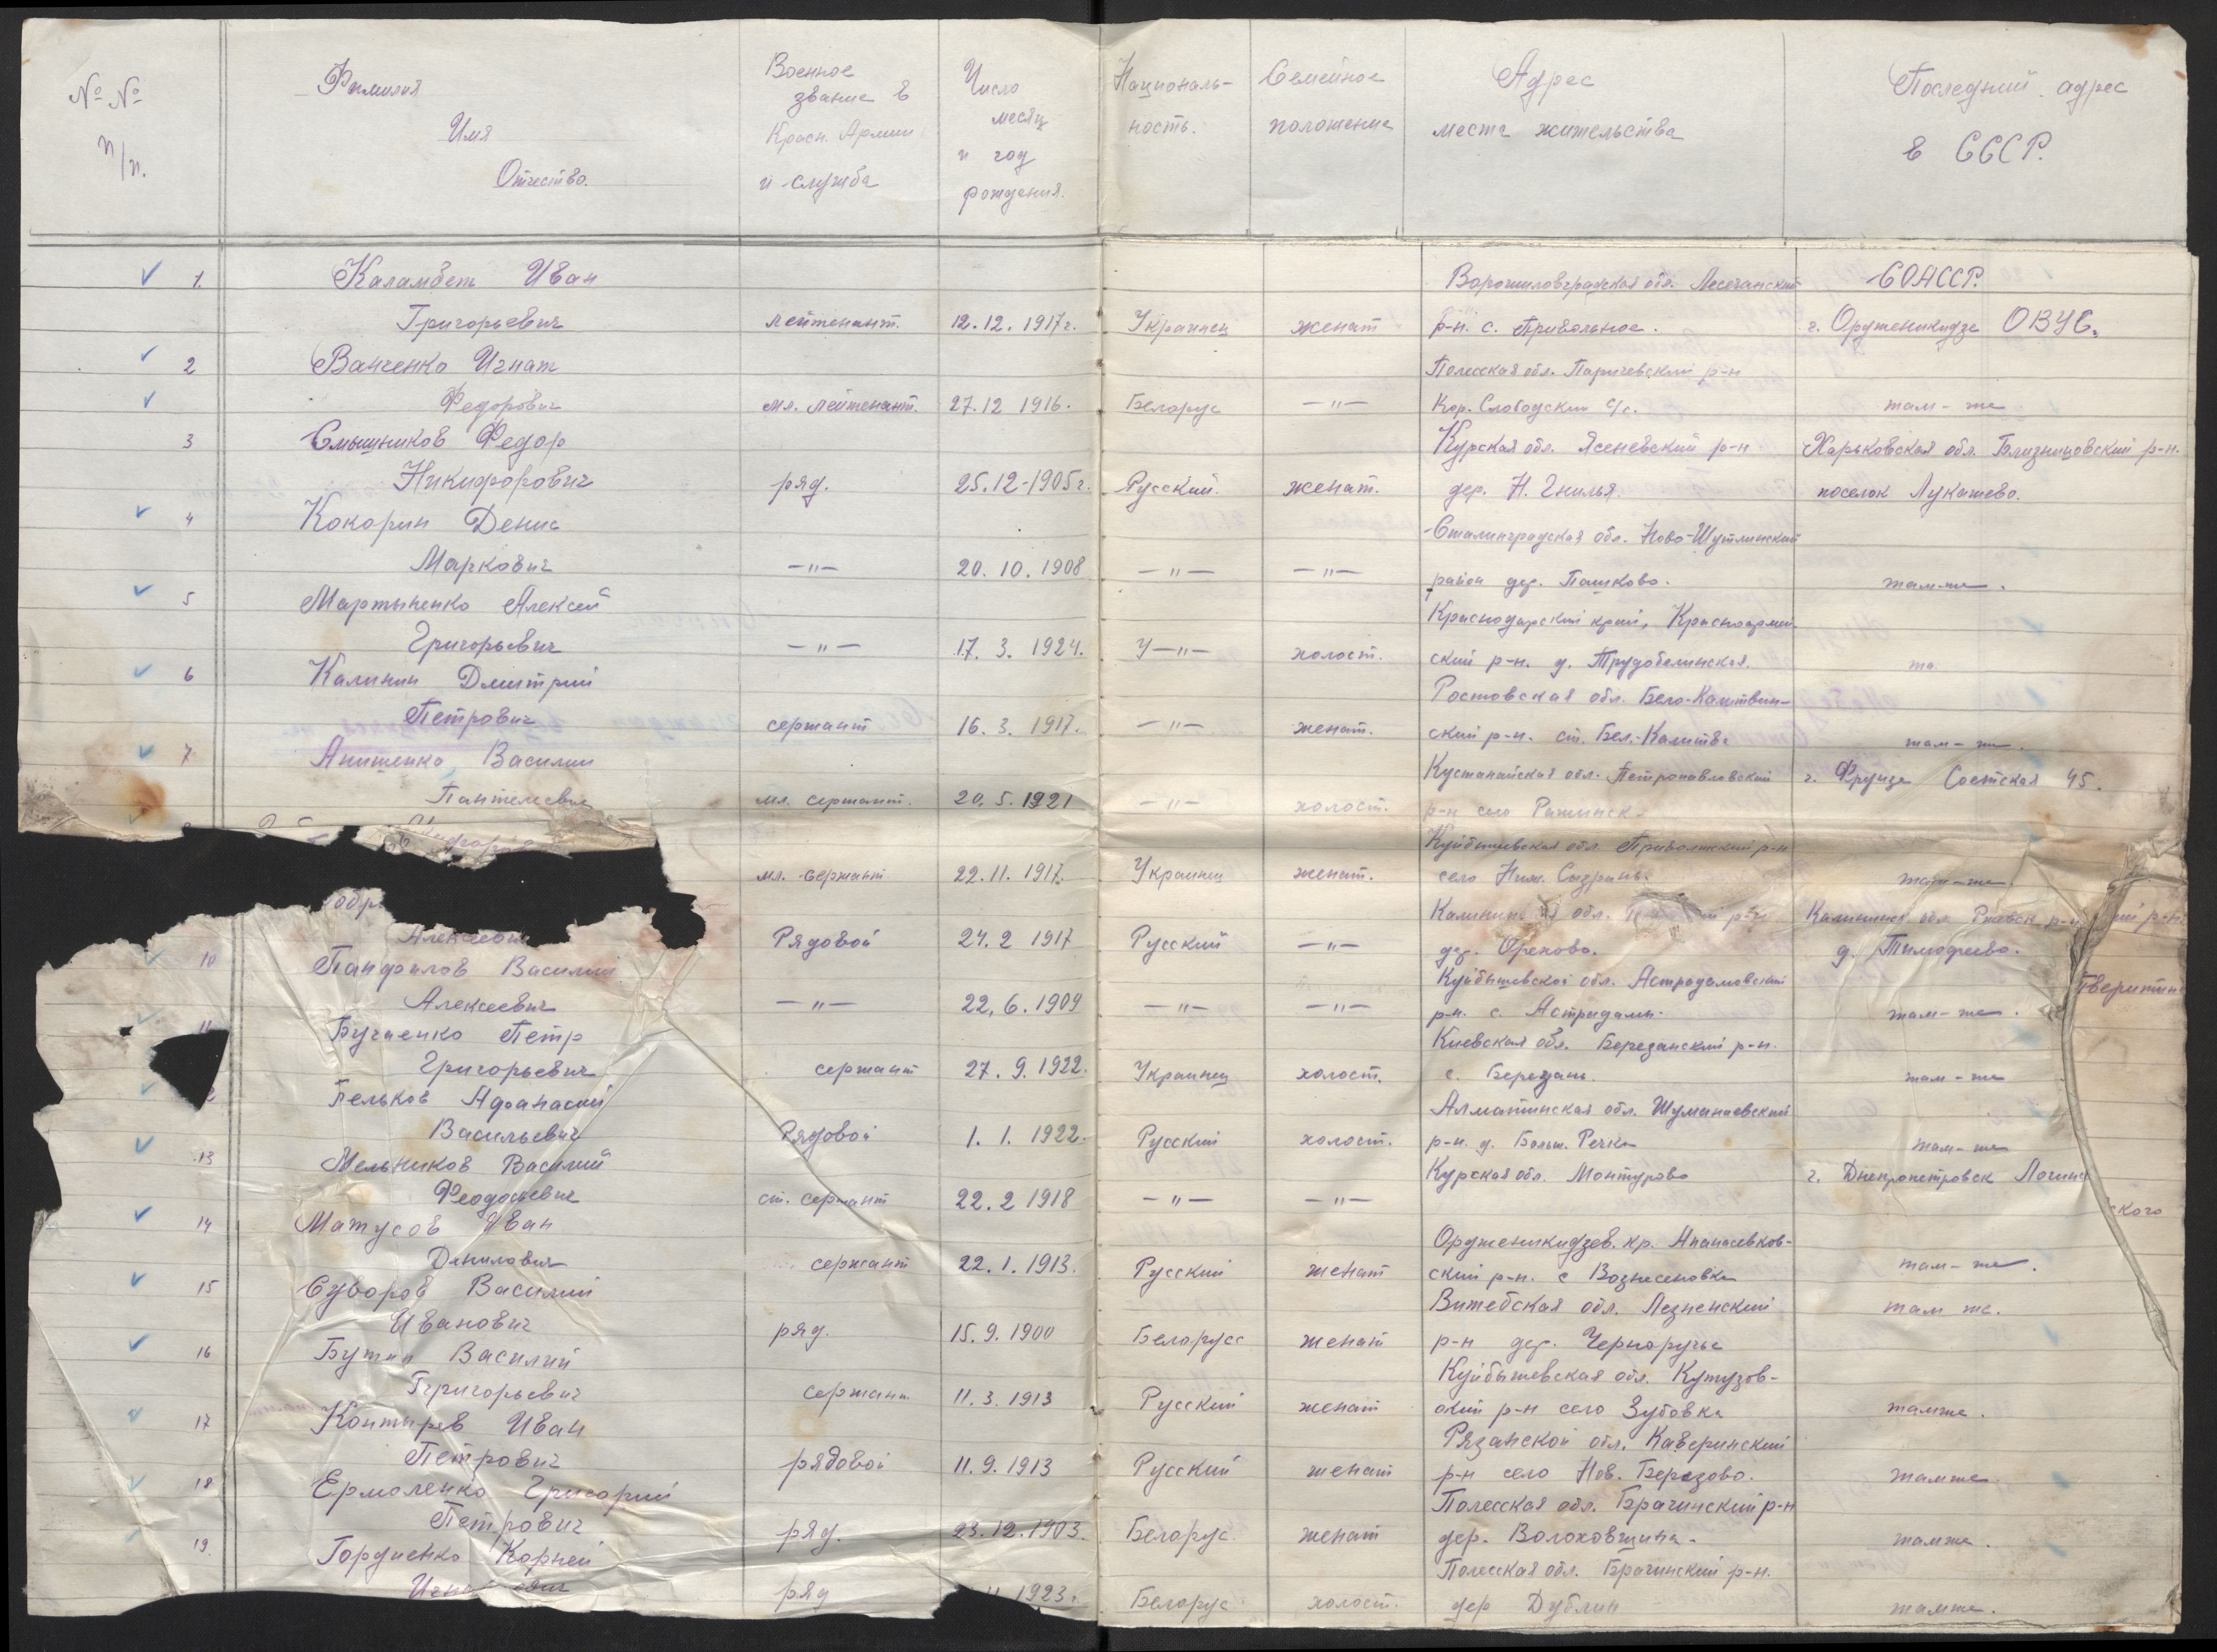 №№ п/п.
Фамилия Имя Отчество.
Военное звание в Красн. Армии и служба
Число месяц и год рождения.
Националь-ность.
Семейное положение
Адрес места жительства
Последний адрес в СССР.
1. Каламбет Иван Ворошиловградская обл. Лесечанский СОАССР.
Григорьевич лейтенант. 12.12.1917г. Украинец женат р-н. с. Привольное. г. Орджоникидзе ОВУС.
2 Ванченко Игнат Полесская обл. Паричевский р-н
Федорович мл. лейтенант. 27.12 1916. Белорус —"— Кор. Слободский с/с. там-же
3 Смышников Федор Курская обл. Ясеневский р-н Харьковская обл. Близнецовский р-н.
Никифорович ряд. 25.12-1905г. Русский. женат. дер. Н. Гнилья. поселок Лукашево.
4 Кокорин Денис Сталинградская обл. Ново-
Маркович —"— 20.10.1908 —"— —"— район дер. Пашково. там-же.
5 Мартыненко Алексей Краснодарский край, Красноармей-
Григорьевич —"— 17.3.1924. У—"— холост. ский р-н. д. Трудобелинская. та
6 Калинин Дмитрий Ростовская обл. Бело-Калитвин-
Петрович сержант 16.3.1917. —"— женат. ский р-н. ст. Бел.-Калитва там-же.
7 Анищенко Василий Кустанайская обл. Петропавловский г. Фрунзе Советская 45.
Пантелеевич мл. сержант. 20.5.1921 —"— холост. р-н село
Куйбышевская обл. Приволжский р-н
мл. сержант 22.11.1917. Украинец женат. село Ниж. Сызрань. там-же.
обл. р-н Калининск обл. Ржевск р-н
Алексеевич Рядовой 24.2 1917 Русский —"— дер. Орехово. д. Тимофеево.
10 Панфилов Василий Куйбышевской обл. Астрадамовский Тверитин
Алексеевич —"— 22.6.1909 —"— —"— р-н. с. Астрадамы. там-же.
11 Бутаенко Петр Киевская обл. Березанский р-н.
Григорьевич сержант 27.9.1922. Украинец холост. с. Березань. там-же
2 Пельков Афанасий Алматинская обл.
Васильевич Рядовой 1.1.1922. Русский холост. р-н. д. Больш. Речка там-же
13 Мельников Василий Курская обл. Мантурово г. Днепропетровск
Феодосиевич ст. сержант 22.2 1918 —"— —"— ского
14 Матусов Иван Орджоникидзев. кр. Апанасенков-
Данилович сержант 22.1.1913. Русский женат ский р-н. с Вознесеновка там-же.
15 Суворов Василий Витебская обл. Лезненский там же.
Иванович ряд. 15.9.1900 Белорусс женат р-н дер. Черноручье
16 Бутин Василий Куйбышевская обл. Кутузов-
Григорьевич сержант 11.3.1913 Русский женат ский р-н село Зубовка тамже.
17 Контырев Иван Рязанской обл. Каверинский
Петрович рядовой 11.9.1913 Русский женат р-н село Нов. Березово. тамже.
18 Ермоленко Григорий Полесская обл. Брагинский р-н
Петрович ряд. 23.12.1903. Белорус. женат дер. Волоховщина. тамже.
19. Гордиенко Корней Полесская обл. Брагинский р-н.
ряд 1923. Белорус холост. дер Дублин тамже.